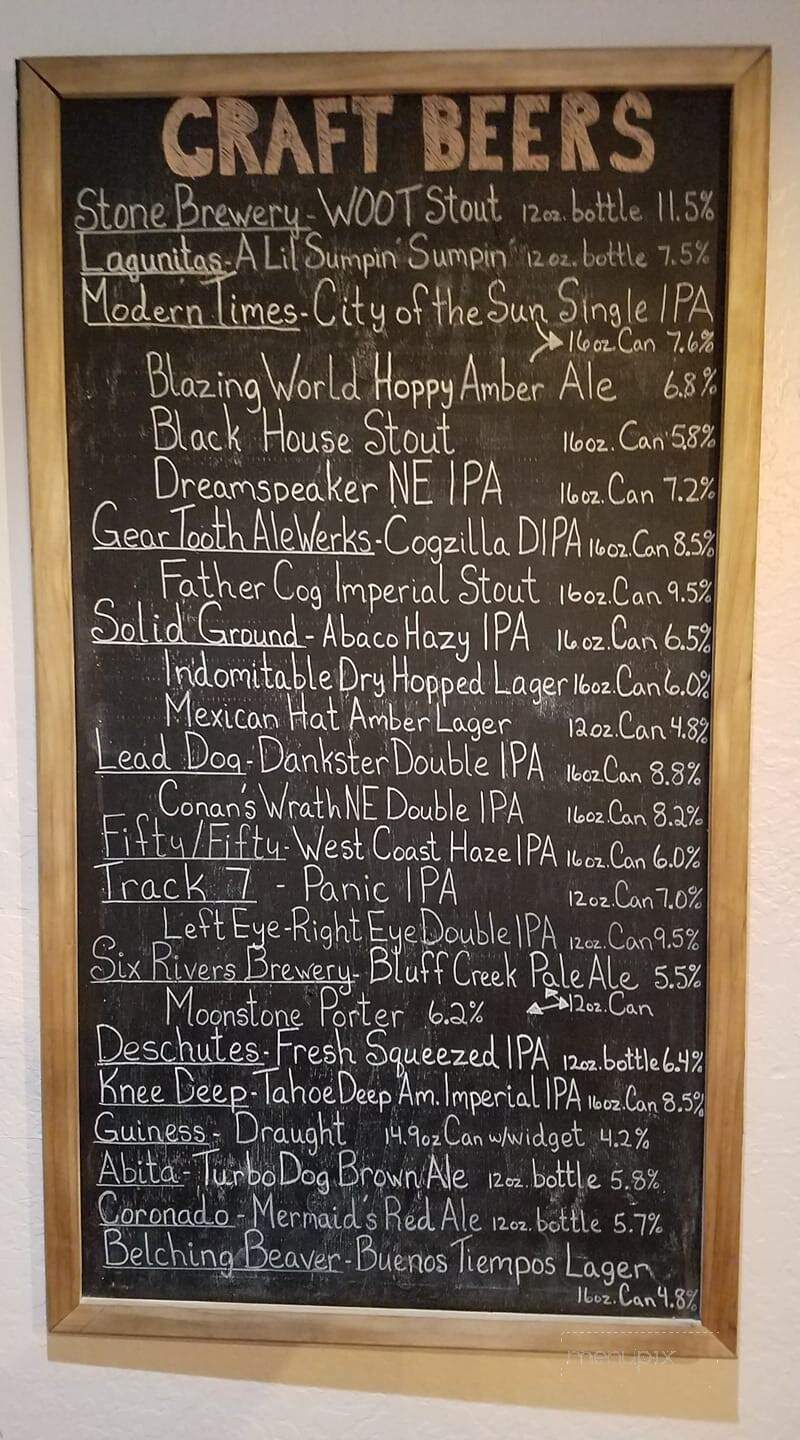 CRAFT BEERS
Stone Brewery - WOOT Stout 12oz. bottle 11.5%
Lagunitas - A Lil' Sumpin' Sumpin' 12oz. bottle 7.5%
Modern Times - City of the Sun Single IPA
16oz Can 7.6%
Blazing World Hoppy Amber Ale 6.8%
Black House Stout 16oz. Can 5.8%
Dreamspeaker NE IPA 16oz. Can 7.2%
Gear Tooth AleWerks - Cogzilla DIPA 16oz. Can 8.5%
Father Cog Imperial Stout 16oz. Can 9.5%
Solid Ground - Abaco Hazy IPA 16.oz. Can 6.5%
Indomitable Dry Hopped Lager 16oz. Can 6.0%
Mexican Hat Amber Lager 12oz. Can 4.8%
Lead Dog - Dankster Double IPA 16oz Can 8.8%
Conan's Wrath NE Double IPA 16oz. Can 8.2%
Fifty/Fifty - West Coast Haze IPA 16oz. Can 6.0%
Track 7 - Panic IPA 12oz. Can 7.0%
Left Eye-Right Eye Double IPA 12oz. Can 9.5%
Six Rivers Brewery - Bluff Creek Pale Ale 5.5%
Moonstone Porter 6.2% 12oz. Can
Deschutes - Fresh Squeezed IPA 12oz. bottle 6.4%
Knee Deep - Tahoe Deep Am. Imperial IPA 16oz. Can 8.5%
Guiness - Draught 14.9oz Can w/widget 4.2%
Abita - Turbo Dog Brown Ale 12oz. bottle 5.8%
Coronado - Mermaid's Red Ale 12oz. bottle 5.7%
Belching Beaver - Buenos Tiempos Lager
16oz. Can 4.8%
menupix